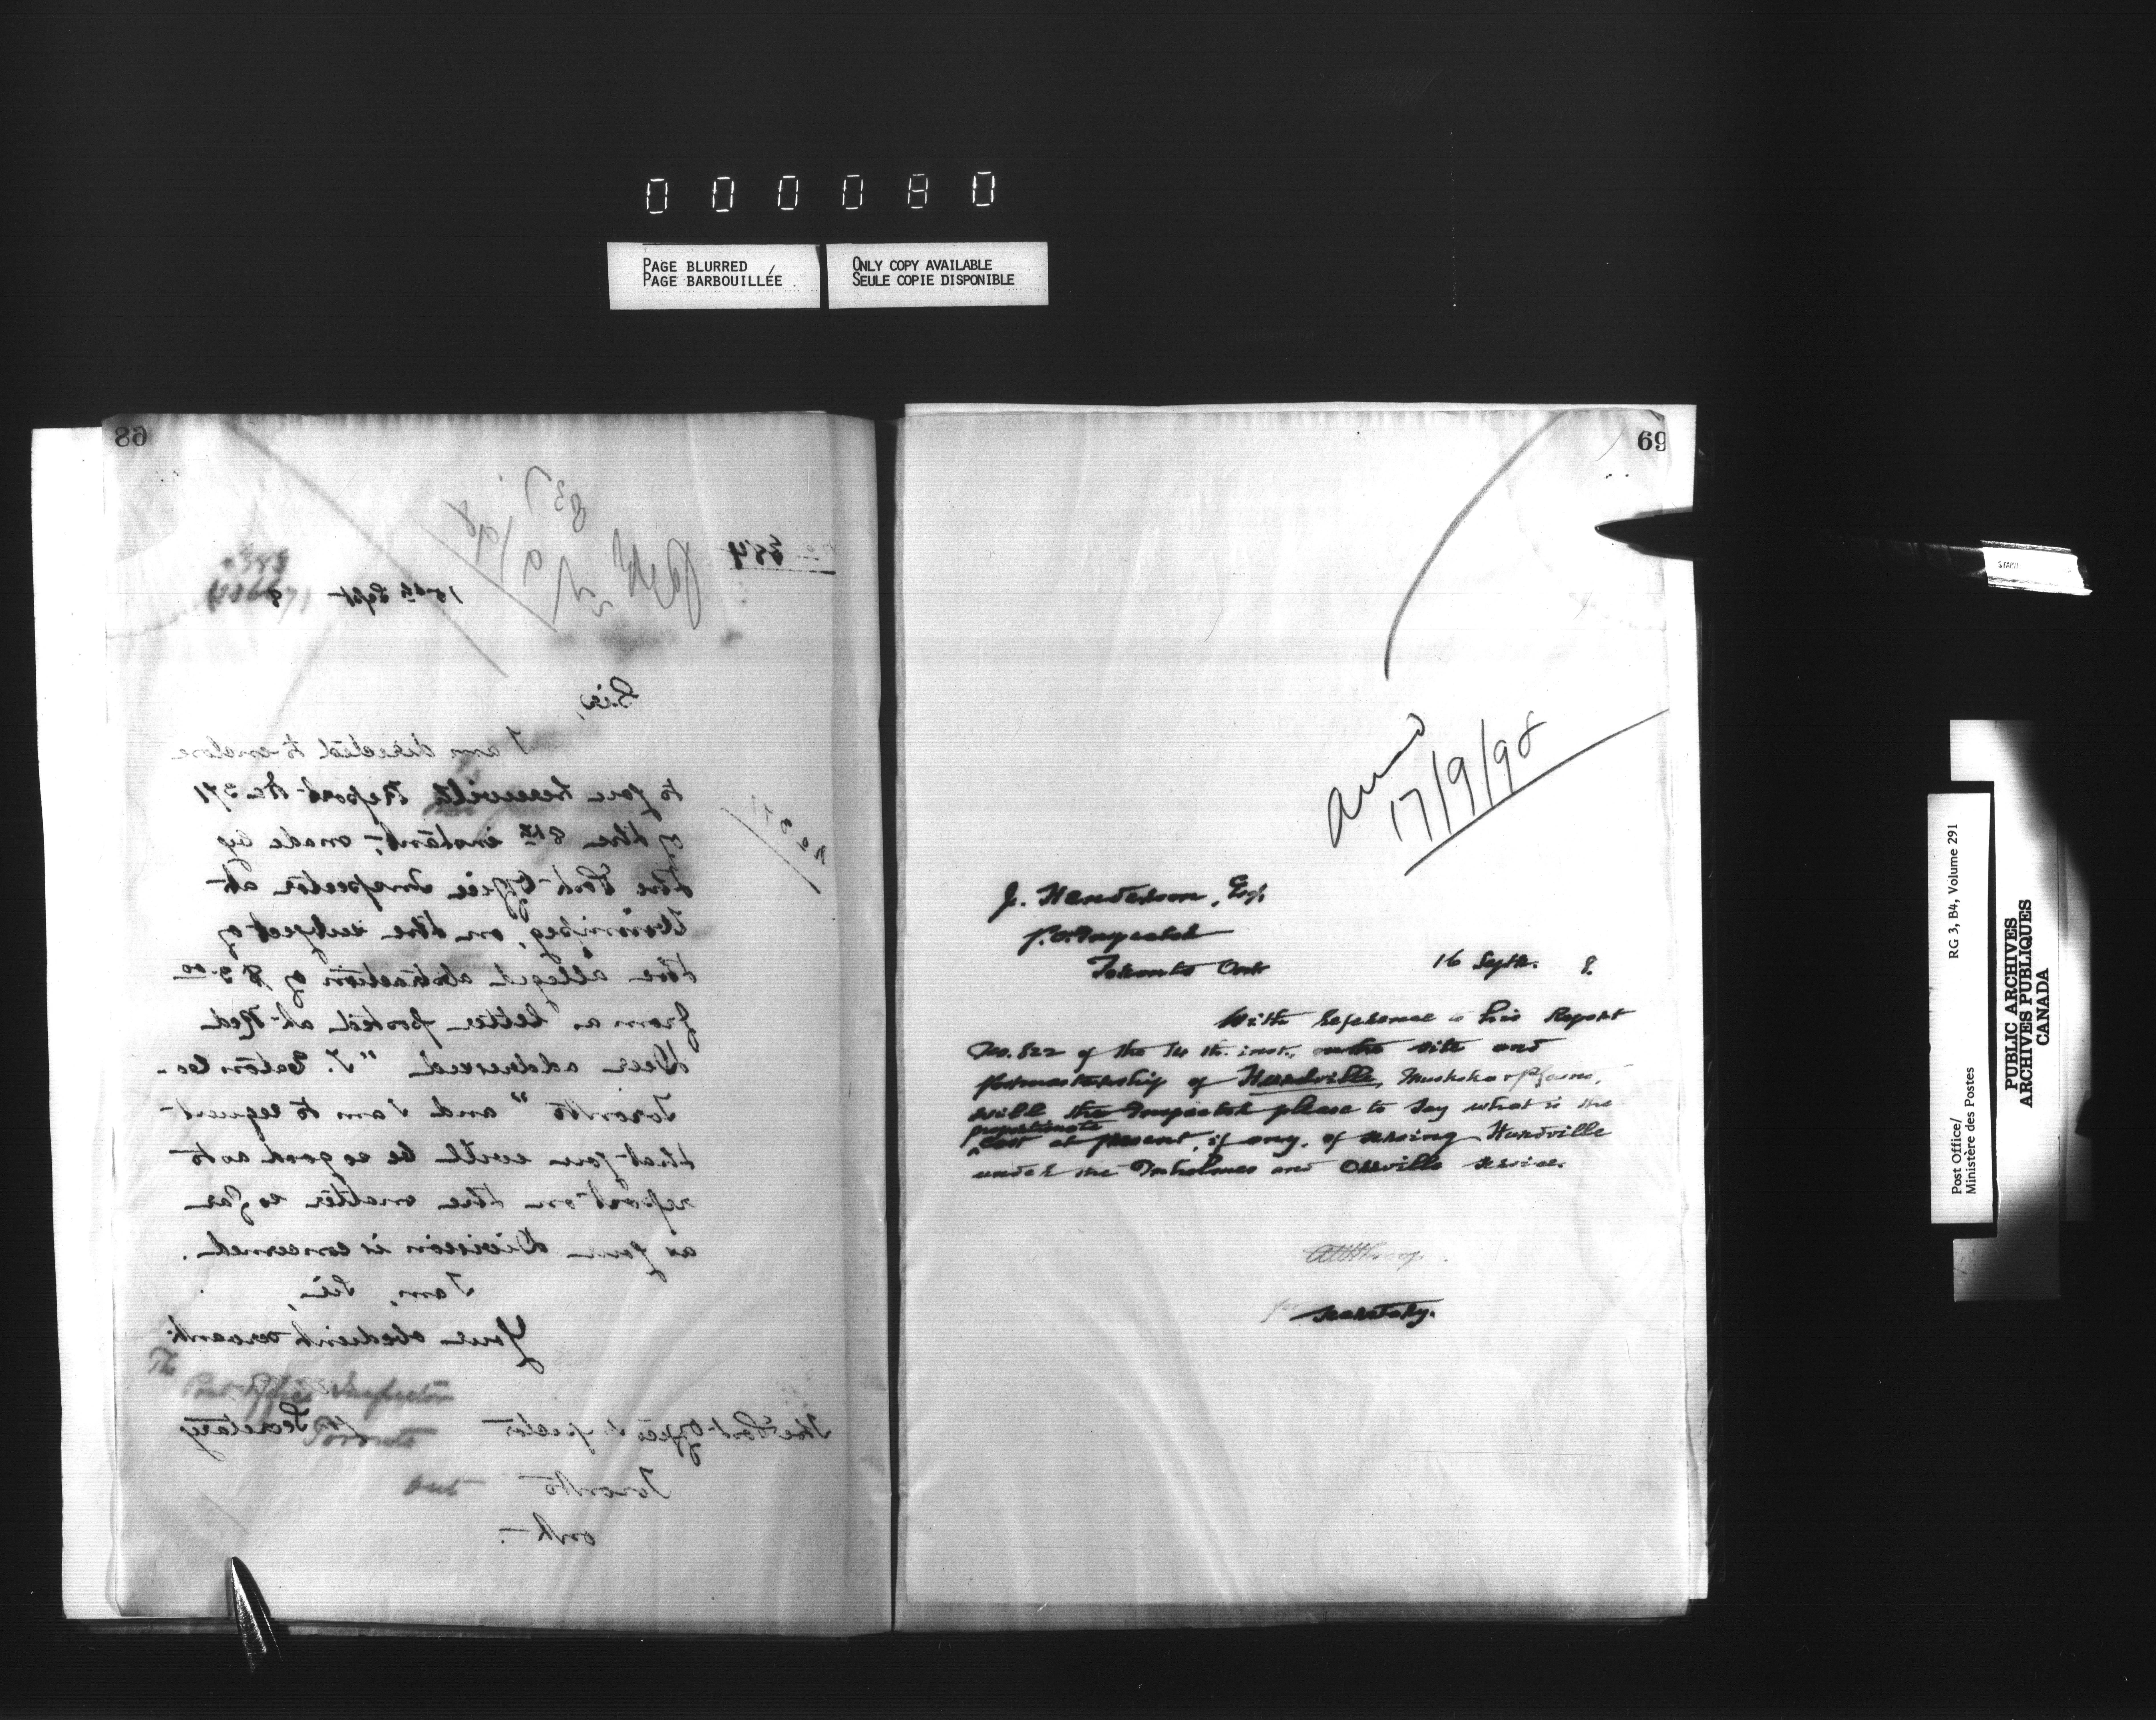 000080
PAGE BLURRED
PAGE BARBOUILLÉE
ONLY COPY AVAILABLE
SEULE COPIE DISPONIBLE
68
No 384
15th Sept 8
Sir,
I am directed to enclose
to you herewith Report No 371
of the 8th instant, made by
the Post Office Inspector at
Winnipeg, on the subject of
the alleged abstraction of $3.00
from a letter posted at Red
Deer addressed "T. Eaton Co.
Toronto" and I am to request
that you will be so good as to
report on the matter so far
as your Division is concerned.
I am, Sir,
Your obedient servant
The
Post Office Inspector
Secretary
Toronto
Ont
The Post Office Inspector
Toronto
Ont.
69
17/9/98
J. Henderson, Esq.
P.O. Inspector
Toronto Ont
16 Septr. 8.
With reference to his Report
No. 822 of the 14 th. inst., on the site and
postmastership of Hurdville, Muskoka & P. Sound,
will the Inspector please to say what is the
proportionate
cost at present, if any, of serving Hurdville
under the and Orrville service.
for Secretary.
Post Office/
Ministère des Postes
RG 3, B4, Volume 291
PUBLIC ARCHIVES
ARCHIVES PUBLIQUES
CANADA